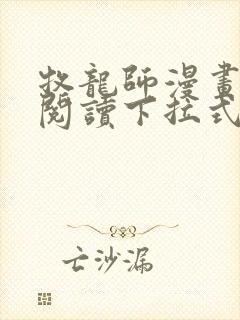 牧龍師漫畫
閱讀下拉式
亡沙漏